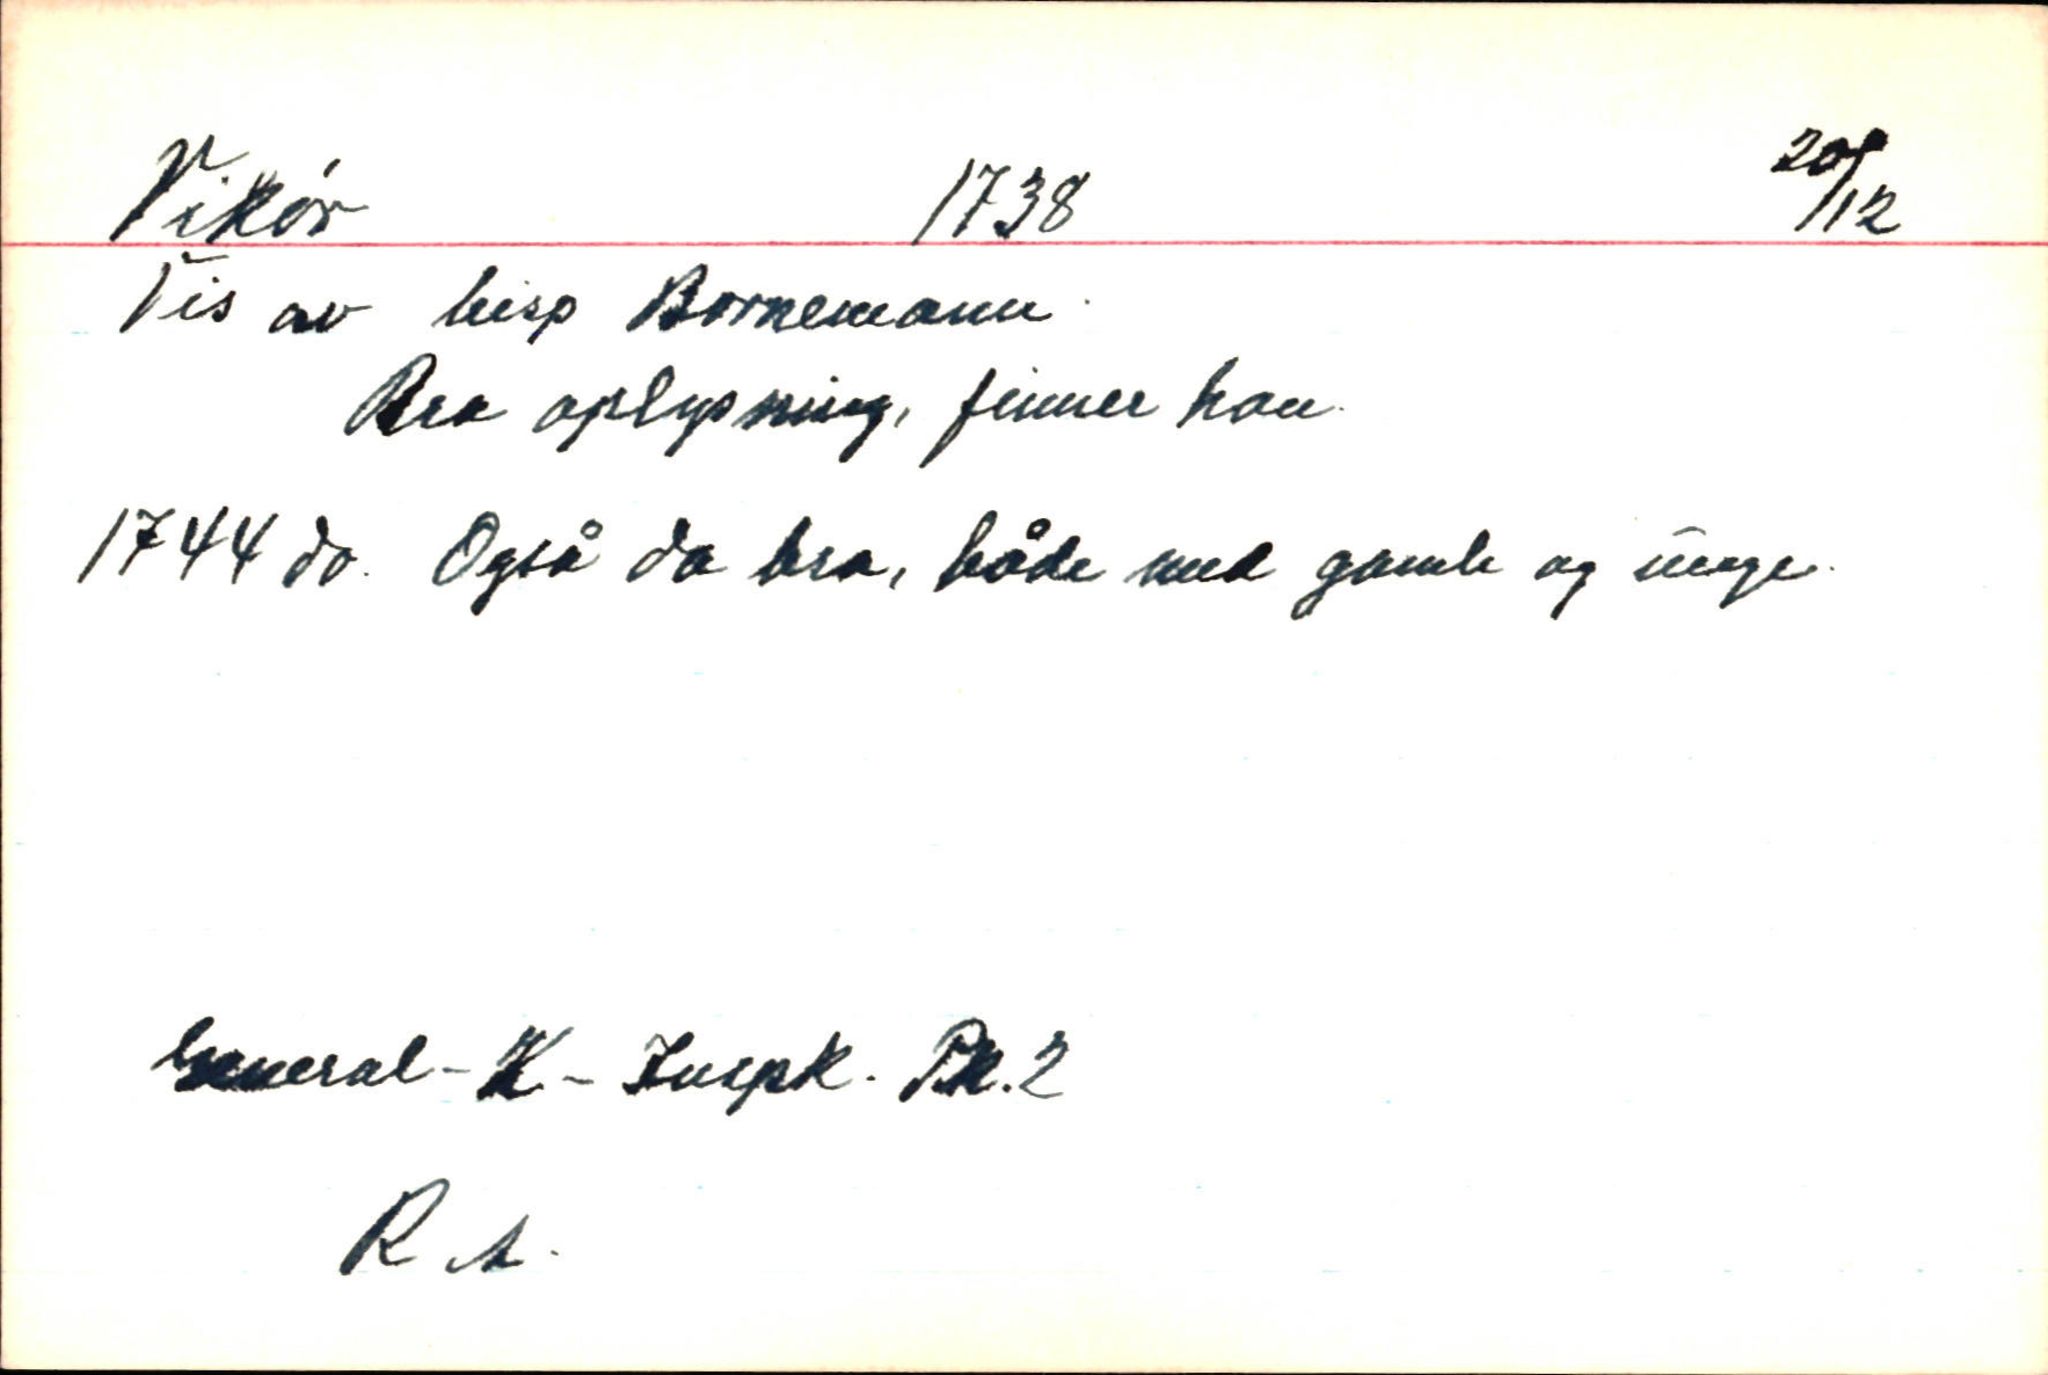 Vikör 1738 20/12
Vis av bisp Bornemann.
Bra oplysning, finner han.
1744 do. Også da bra, både med gamle og unge.
General-K-Inspk. Pk.2
R A.